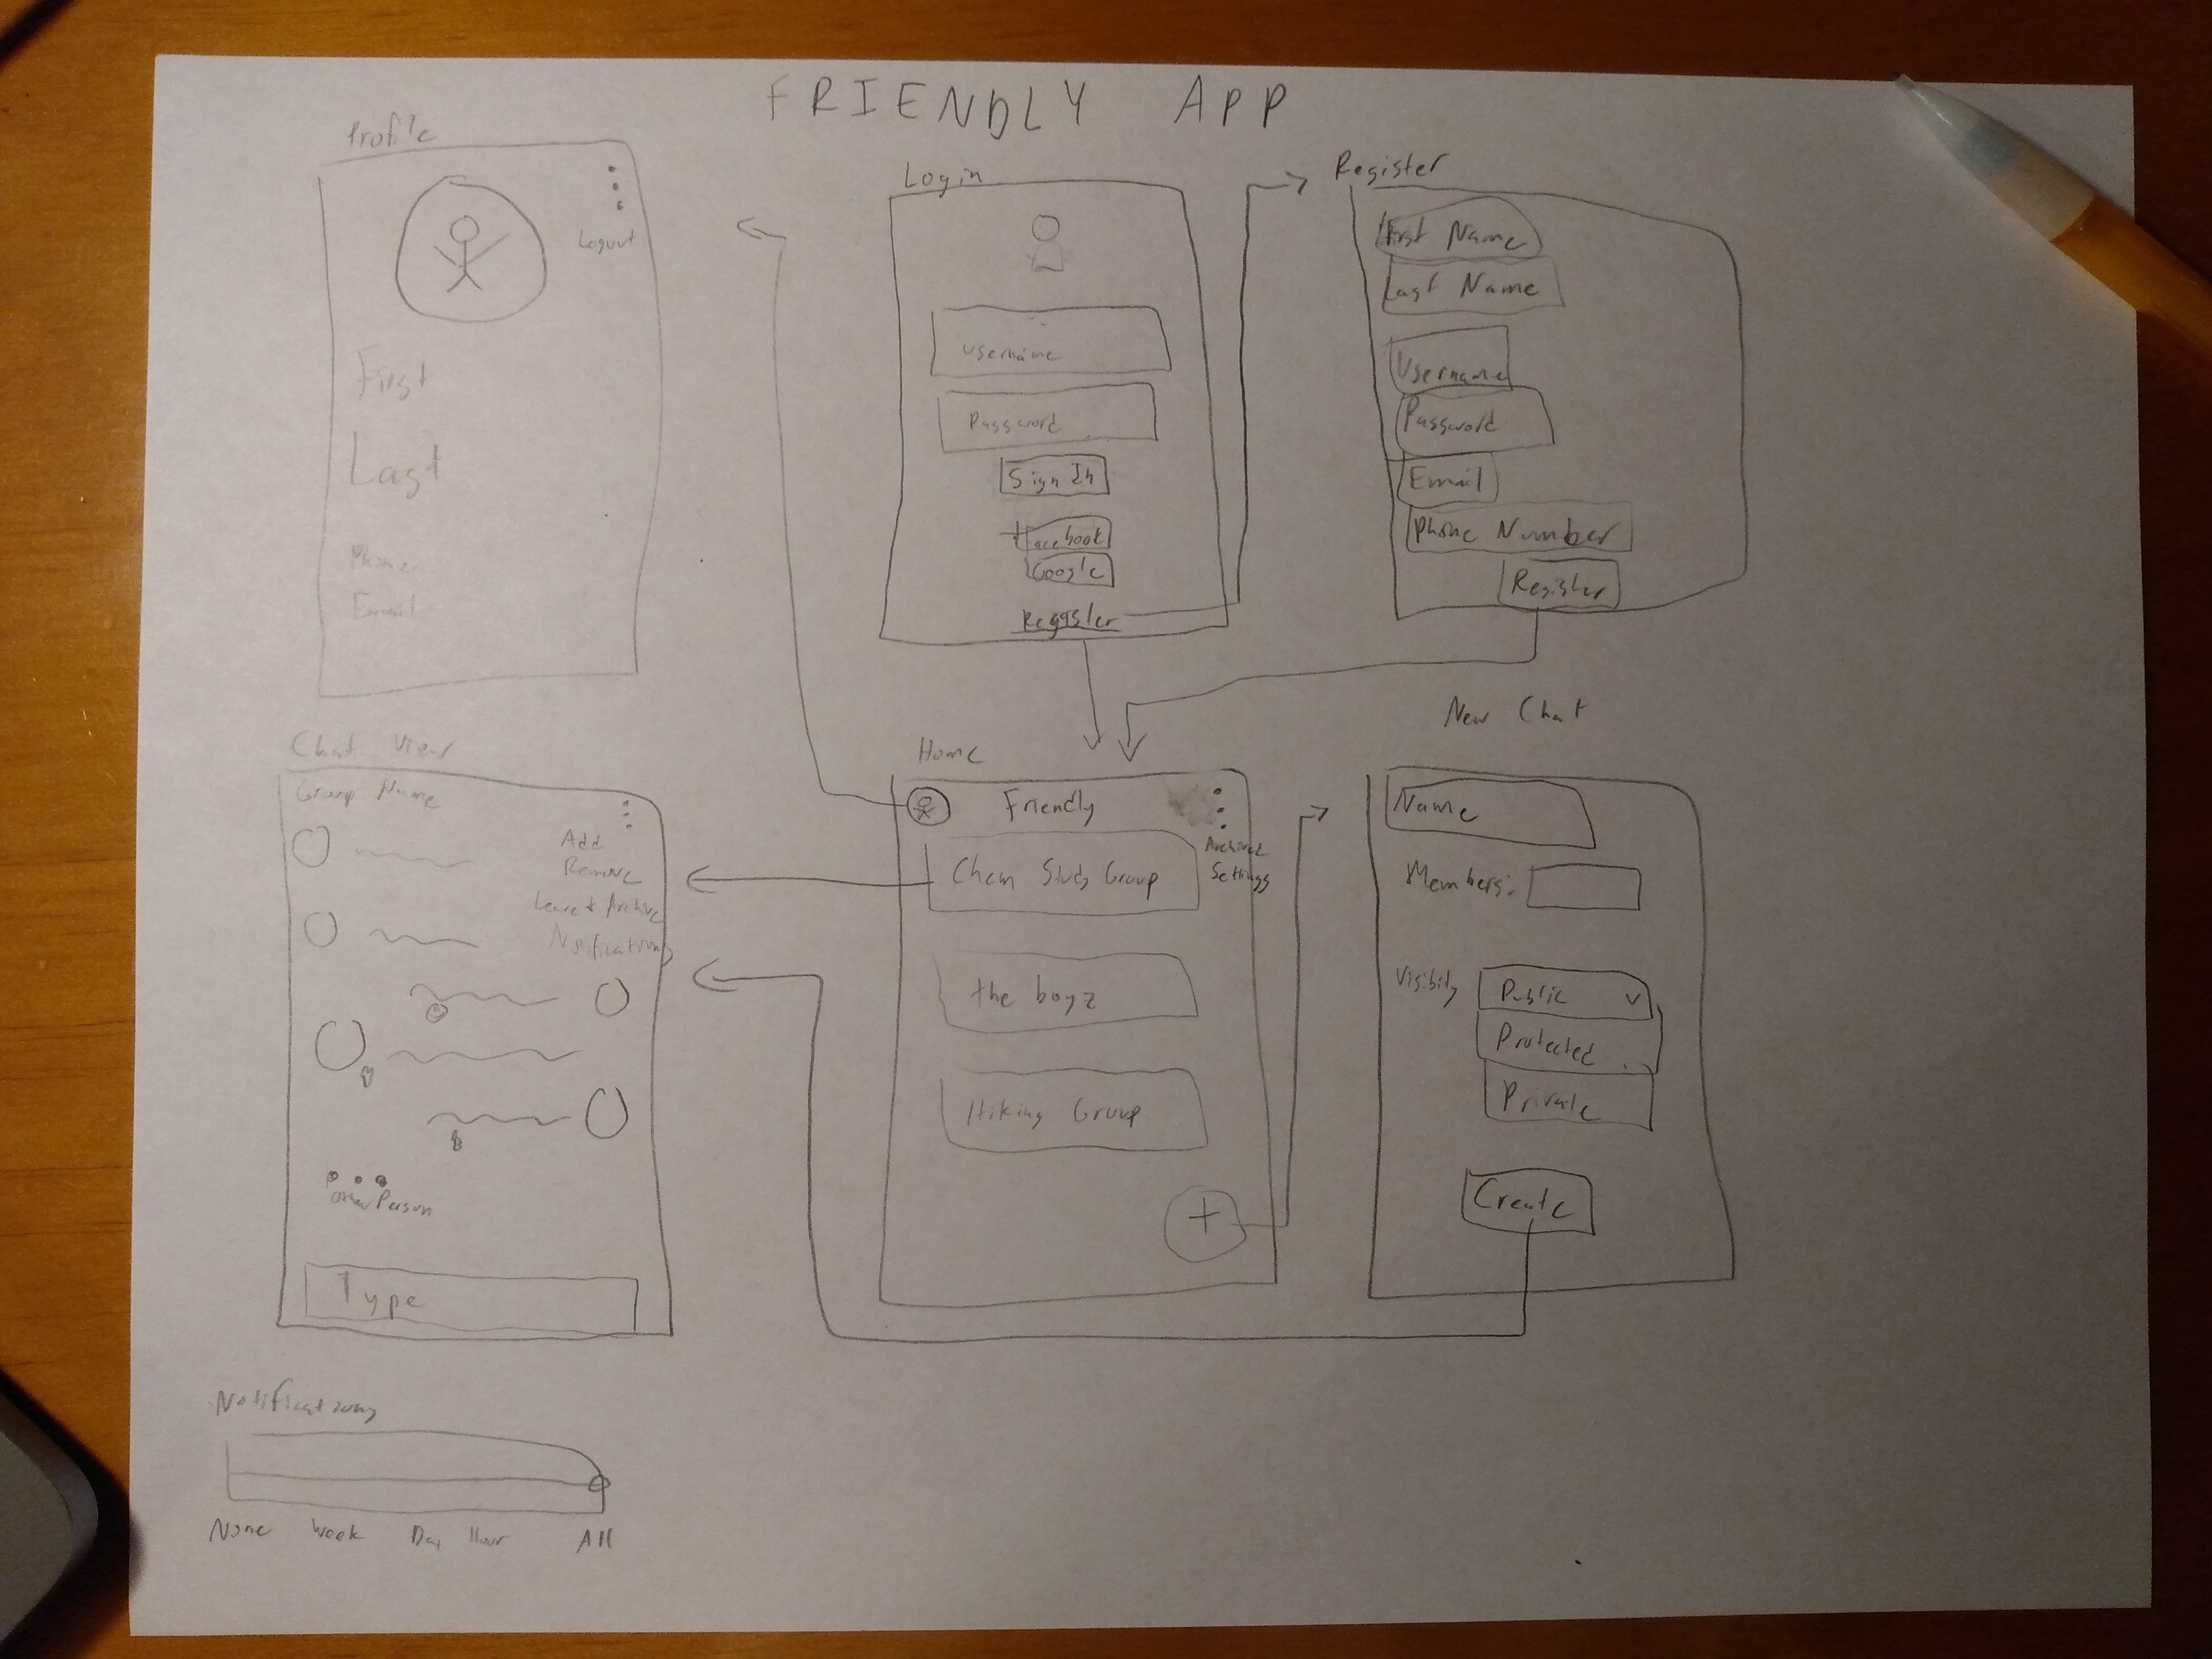 FRIENDLY APP
Profile
Logout
First
Last
Phone
Email
Login
Username
Password
Sign In
Facebook
Google
Register
Register
First Name
Last Name
Username
Password
Email
Phone Number
Register
Chat View
Group Name
Add
Remove
Leave + Archive
Notifications
Other Person
Type
Home
Friendly
Archived
Settings
Chem Study Group
the boyz
Hiking Group
+
New Chat
Name
Members:
Visibility
Public
Protected
Private
Create
Notifications
None Week Day Hour All